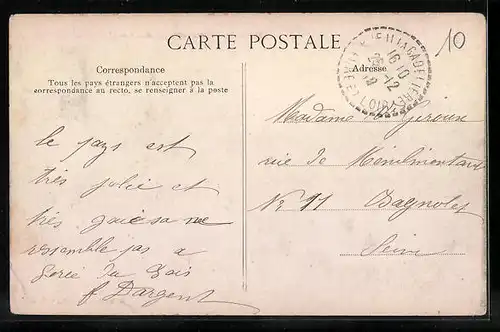 CARTE POSTALE
10
Correspondance
Tous les pays étrangers n'acceptent pas la
correspondance au recto, se renseigner à la poste
le pays est
très jolie et
très
ressemble pas a
du bois
f Dargent
Adresse
16 10
12
LOIRET
Madame
rue de Ménilmontant
No 91 Bagnolet
Seine